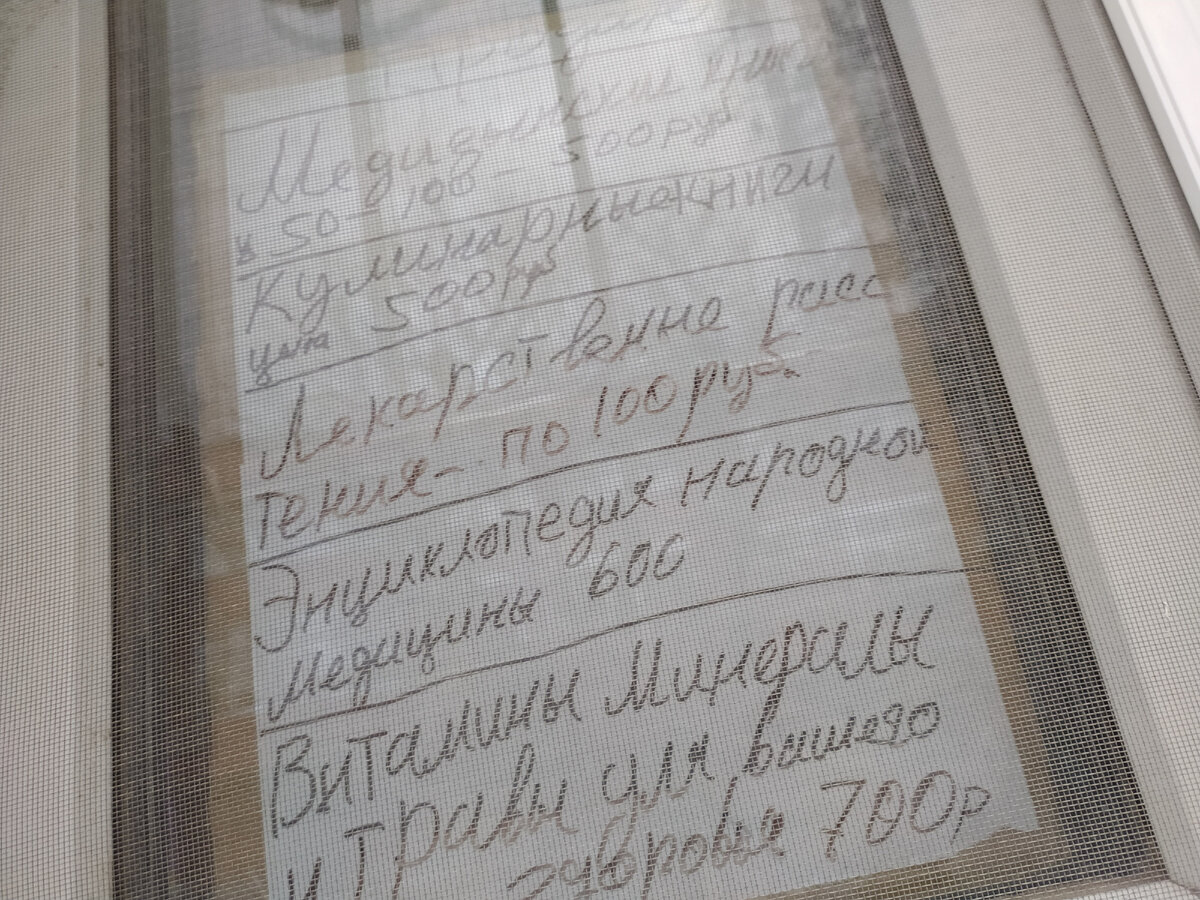 Медицынские книги
в 50-100-500руб.
Кулинарные книги
цена 500руб
Лекарственне расс
тения-. по 100 руб.
Энциклопедия народной
медицины 600
Витамины Минералы
и травы для вашего
здоровья 700р